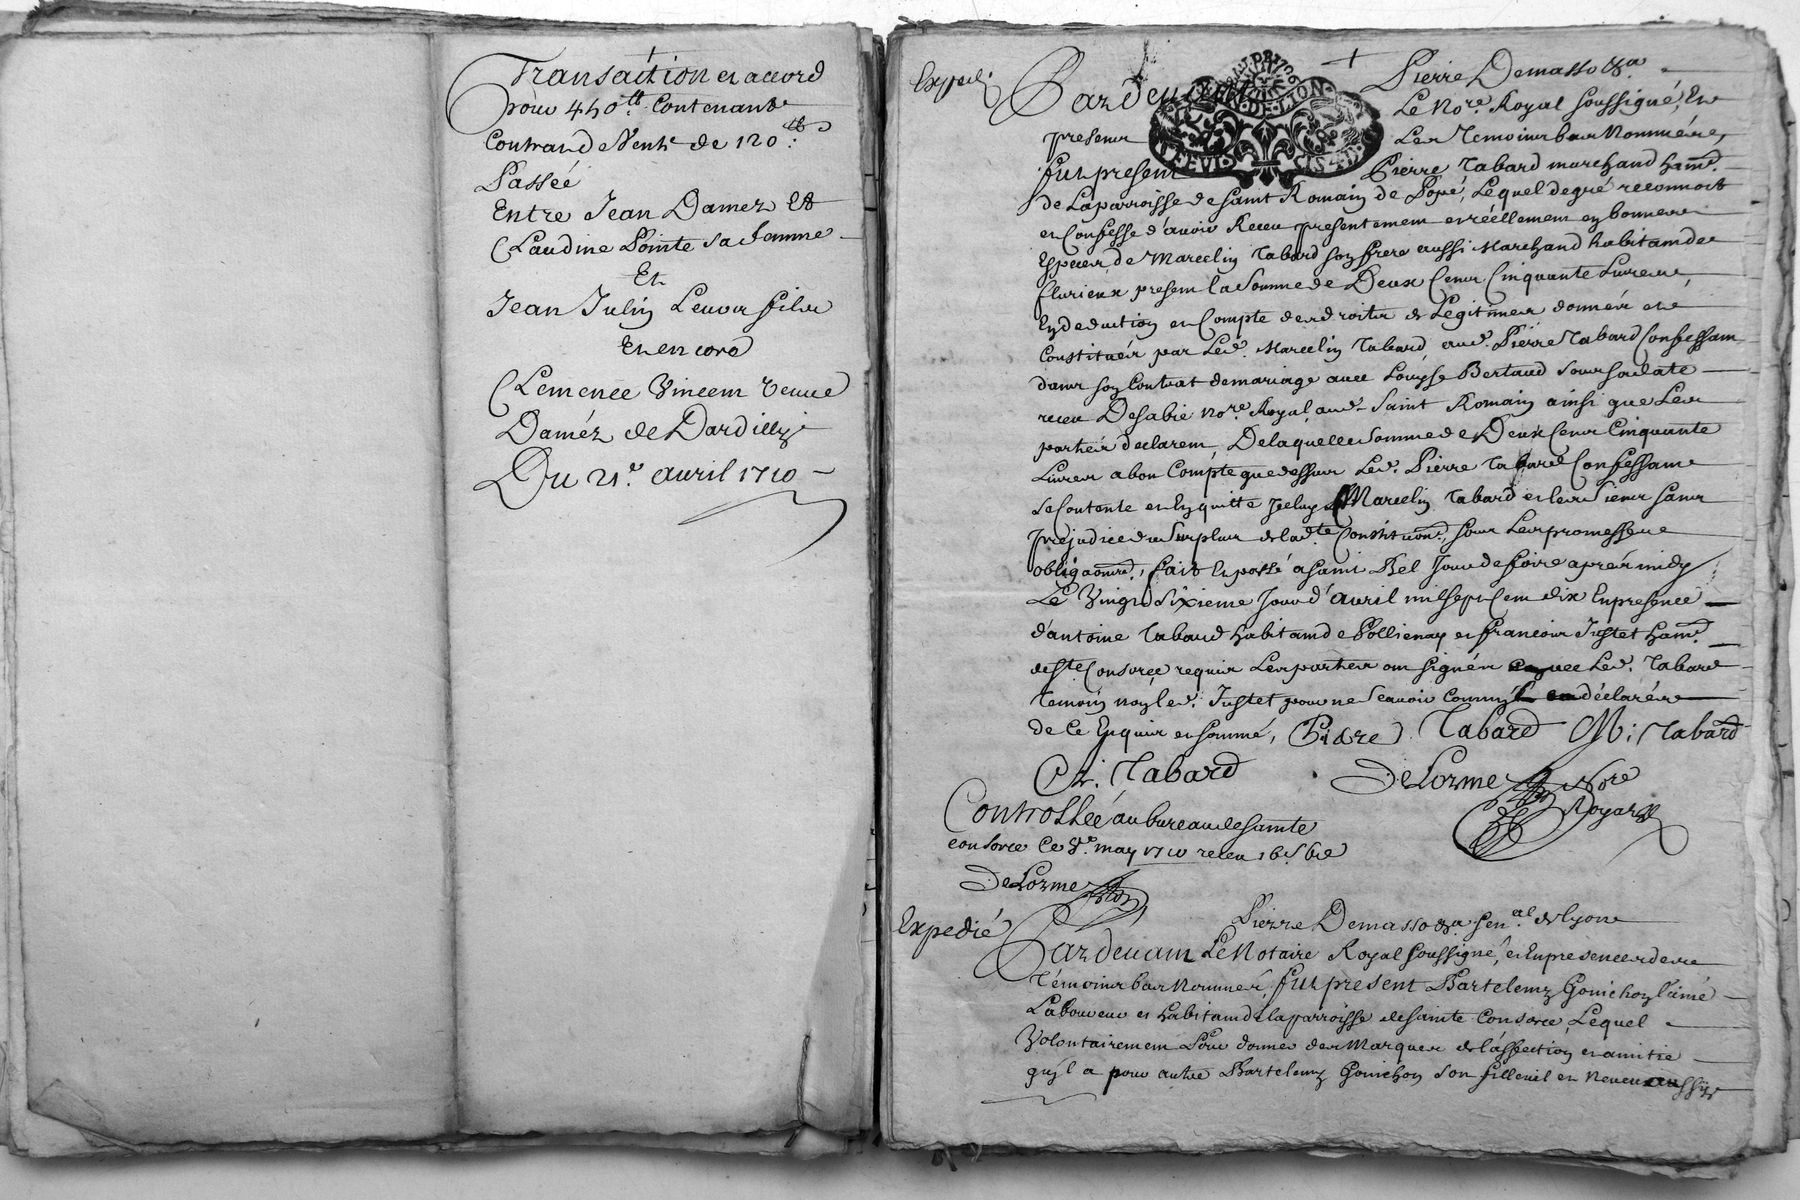 Transaction et accord
pour 440ᵗᵗ. Contenant
Contrand e Vente de 120ᵗᵗ.
Passéé
Entre Jean Damez Et
Claudine Pointe sa femme
Et
Jean Julin Leuor filz
Et en coro
Clemence Vincem veuue
Daméz de Dardilly
Du 21ᵉ. auril 1710
Exped.
Pardeuant Pierre Demasso &ᵃ
Le Noʳᵉ. Royal soussigné, En
presence Les Temoins bas Nommées,
fut present Pierre Tabard marchand
de La parroisse de saint Romain de Popé, Lequel de gré reconnoit
et Confesse d'auoir Receu presentement et réellement en bonnes
Especes, de Marcelin Tabard son frere aussi Marchand habitant de
fleurieux present la Somme de Deux Cens Cinquante Liures
En deduction et Compte des droits de Legitimes donnéz et
Constituéz par Led. Marcelin Tabard aud. Pierre Tabard Confessant
dans son Contrat de mariage auec Louyse Bertaud sour sa date
receu Desabie noʳᵉ. Royal aud. Saint Romain ainsi que Les
parties declarent, De laquelle somme de Deux Cens Cinquante
Liures a bon Compte que dessus Led. Pierre Tabard Confessant
se Contente et En quitte Jcelluy Marcelin Tabard et les siens sans
prejudice du surplus de lad.ᵗᵉ Constituonᵈ., sous Les promesses
obligaonsᵈ., fait Et passé a saint Bel Jour de foire aprés midy
Le Vingt Sixieme Jour d'auril mil sept Cens dix En presence
d'antoine Tabard habitant de Pollienay et francois Justet
de Sᵗᵉ Consorce requis Les parties ont signéz auec Led. Tabard
temoin non led. Justet pour ne scauoir déclarées
de Ce Enquis et sommé, Piarre Tabard M: Tabard
A. Tabard DeLorme Noʳᵉ
Royal
Controsllée au bureau de Sainte
consorce Ce 8ᵉ. may 1710 receu
DeLorme
Expedié
Pierre Demasso &ᵃ Senᵃˡ de lyon
Pardeuant Le Notaire Royal soussigné, et En presence des
témoins bas Nommés, fut present Bartelemy Gonichon l'ainé
Laboureur et habitant de la parroisse de Sainte Consorce, Lequel
Volontairement Pour donner des Marques de l'affection et amitie
qu'jl a pour autre Bartelemy Gonichon son filleuil et neueu aussy